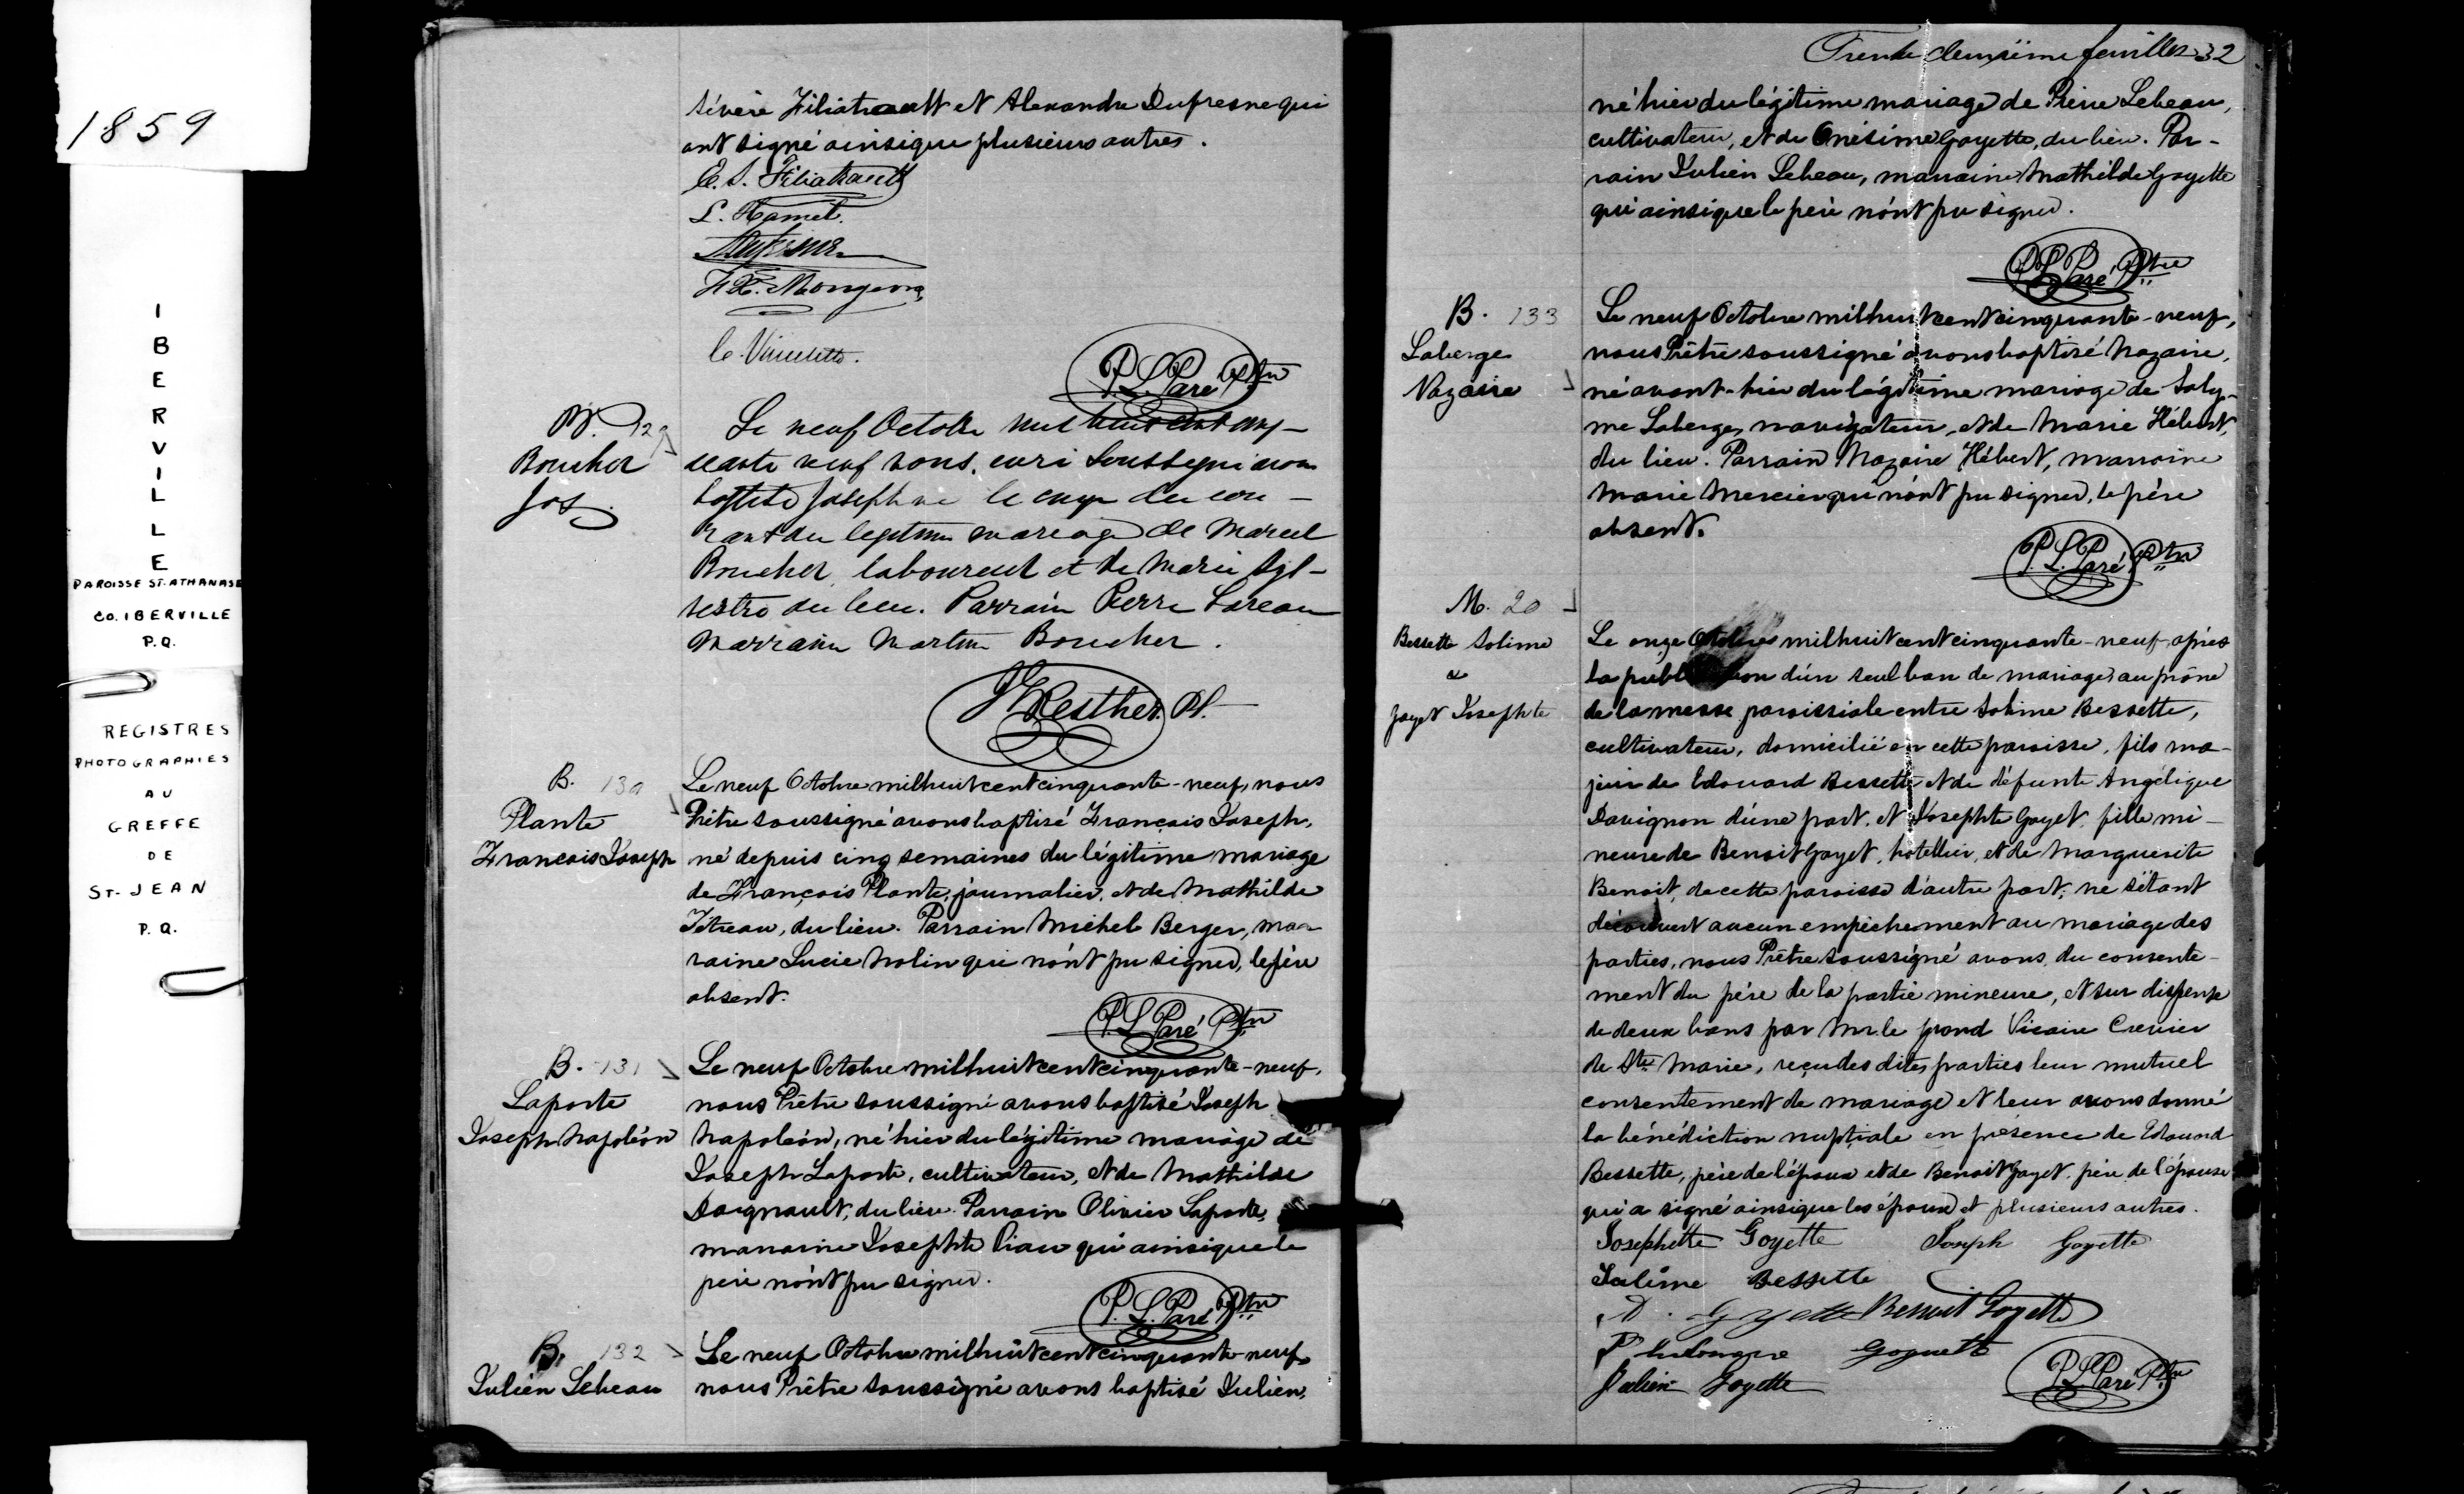 1859
I
B
E
R
V
I
L
L
E
PAROISSE ST-ATHANASE
CO. IBERVILLE
P.Q.
REGISTRES
PHOTOGRAPHIES
AU
GREFFE
DE
ST-JEAN
P.Q.
Sévère Filiatrault et Alexandre Dufresne qui
ont signé ainsi que plusieurs autres.
E. S. Filiatrault
L. Hamel.
F.X. Mongeon
P. L. Paré Ptre
B. 129
Boucher
Jos
Le neuf Octobre mil huit cent cinq-
uante neuf nous, curé soussigné avons
baptisé Joseph né le cinq du cou-
rant du legitime mariage de Marcel
Boucher laboureur et de Marie Syl-
vestre du lieu. Parrain Pierre Lareau
Marraine Martine Boucher.
Resther Pt.
B. 130
Plante
Francois Joseph
Le neuf Octobre mil huit cent cinquante-neuf, nous
Prêtre soussigné avons baptisé François Joseph,
né depuis cinq semaines du légitime mariage
de François Plante, journalier, et de Mathilde
Tétreau, du lieu. Parrain Michel Berger, mar
raine Lucie Molin qui n'ont pu signer, le père
absent.
P. L. Paré Ptre
B. 131
Laporte
Joseph Napoléon
Le neuf Octobre mil huit cent cinquante-neuf,
nous Prêtre soussigné avons baptisé Joseph
Napoléon, né hier du légitime mariage de
Joseph Laporte, cultivateur, et de Mathilde
Daignault, du lieu. Parrain Olivier Laporte,
marraine Josephte Piau qui ainsi que le
père n'ont pu signer.
P. L. Paré Ptre
B. 132
Julien Lebeau
Le neuf Octobre mil huit cent cinquante-neuf
nous Prêtre soussigné avons baptisé Julien,
Trente deuxième feuillet 32
né hier du légitime mariage de Pierre Lebeau,
cultivateur, et de Onésime Goyette, du lieu. Par-
rain Julien Lebeau, marraine Mathilde Goyette
qui ainsi que le père n'ont pu signer.
P. L. Paré Ptre
B. 133
Laberge
Nazaire
Le neuf Octobre mil huit cent cinquante-neuf,
nous Prêtre soussigné avons baptisé Nazaire,
né avant-hier du légitime mariage de Soly-
me Laberge, navigateur, et de Marie Hébert,
du lieu. Parrain Nazaire Hébert, marraine
Marie Mercier qui n'ont pu signer, le père
absent.
P. L. Paré Ptre
M. 20
Bessette Solime
&
Goyet Josephte
Le onze Octobre mil huit cent cinquante-neuf, après
la publication d'un seul ban de mariage au prône
de la messe paroissiale entre Solime Bessette,
cultivateur, domicilié en cette paroisse, fils ma-
jeur de Edouard Bessette et de défunte Angélique
Davignon d'une part, et Josephte Goyet, fille mi-
neure de Benoit Goyet, hotellier, et de Marguerite
Benoit, de cette paroisse d'autre part; ne s'étant
découvert aucun empêchement au mariage des
parties, nous Prêtre soussigné avons, du consente-
ment du père de la partie mineure, et sur dispense
de deux bans par Mr. le grand Vicaire Crevier
de Ste Marie, reçu des dites parties leur mutuel
consentement de mariage et leur avons donné
la bénédiction nuptiale en présence de Edouard
Bessette, père de l'époux et de Benoit Goyet, père de l'épouse
qui a signé ainsi que les époux et plusieurs autres.
Josephette Goyette Joseph Goyette
Salime Bessette
Goyette Benoit Goyette
Julien Goyette
P. L. Paré Ptre